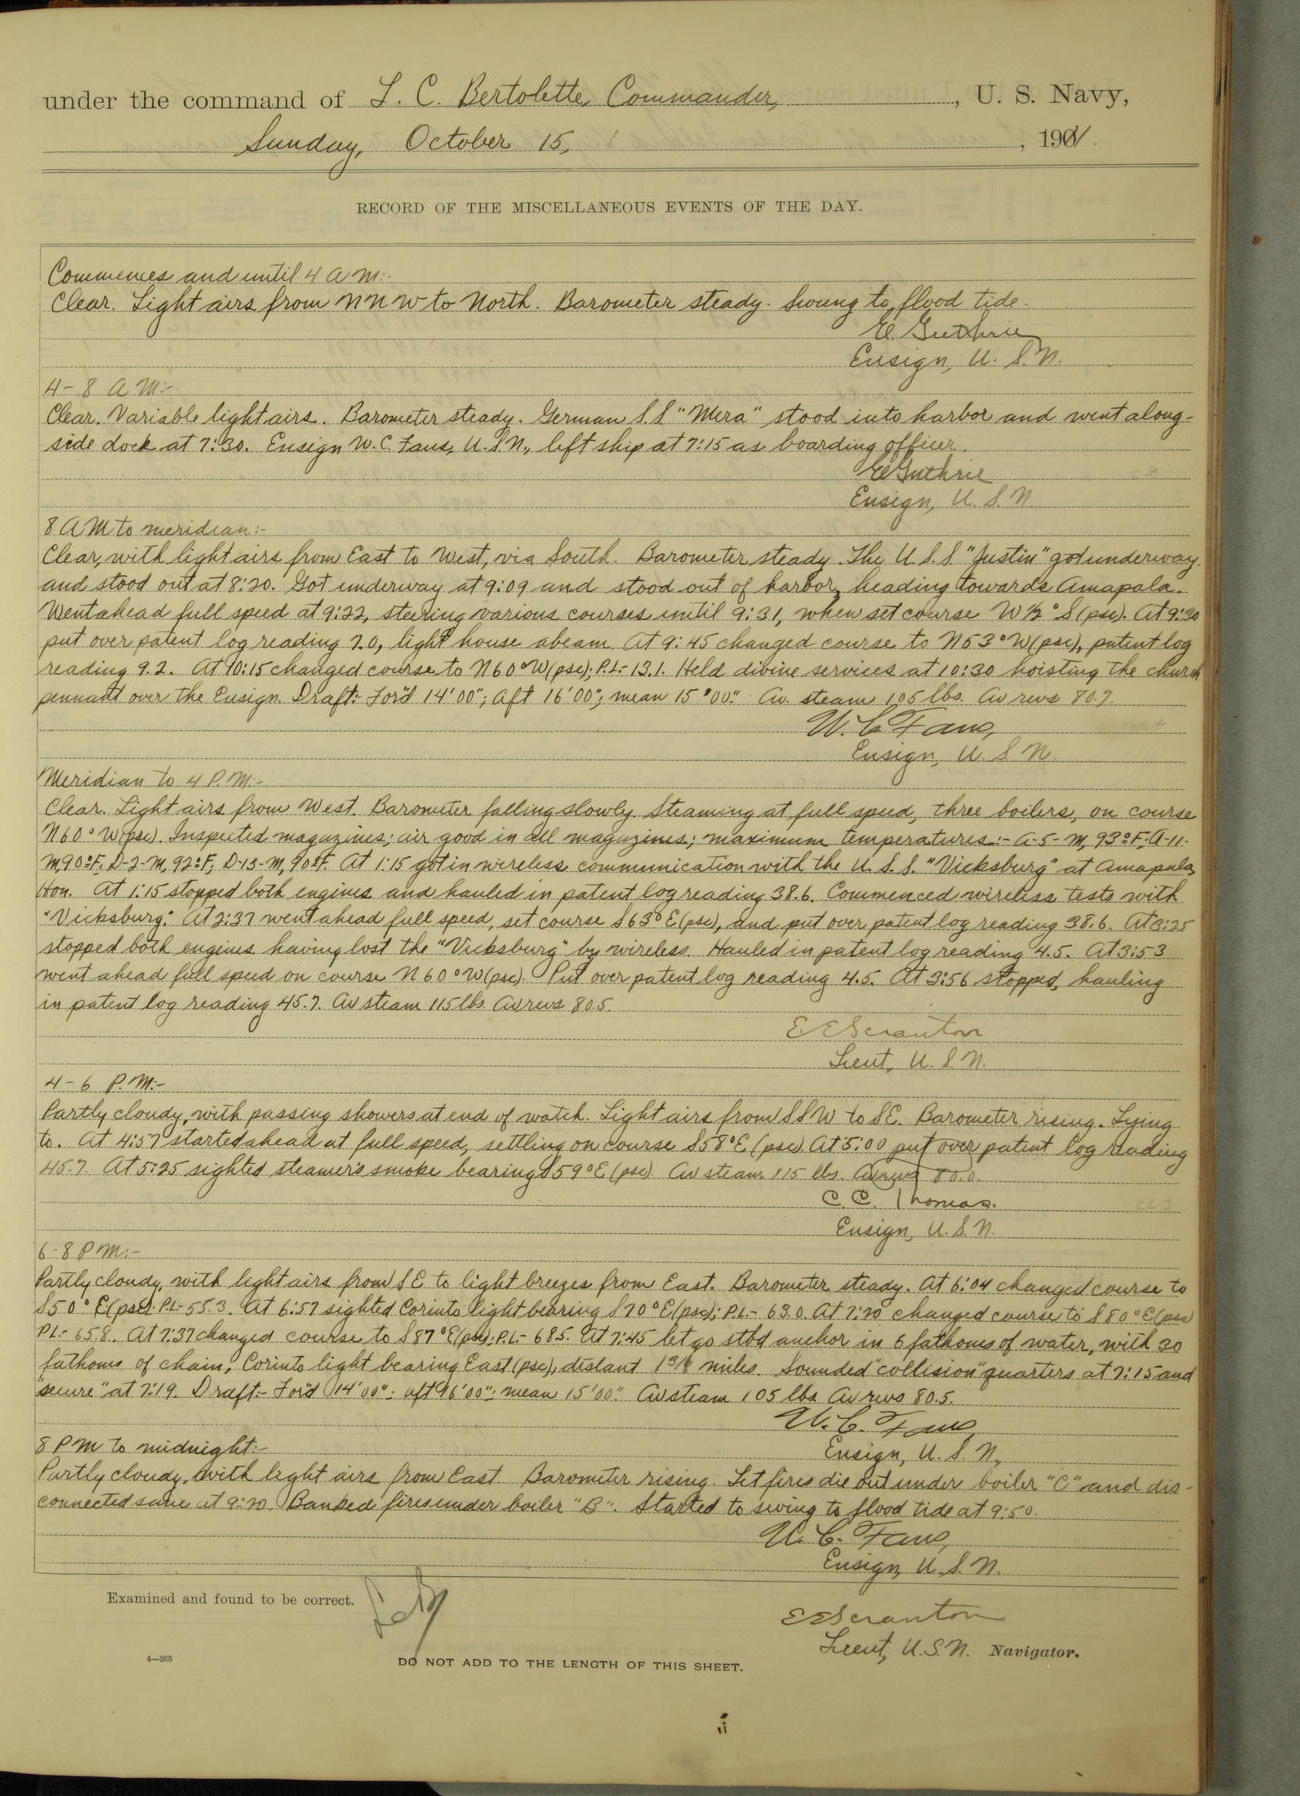 under the command of L. C. Bertolette, Commander, , U. S. Navy,
Sunday, October 15, , 1911.
RECORD OF THE MISCELLANEOUS EVENTS OF THE DAY.
Commences and until 4 A M:-
Clear. Light airs from NNW to North. Barometer steady. Swung to flood tide.
E Guthrie
Ensign, U. S. N.
4-8 A M:-
Clear. Variable light airs. Barometer steady. German S.S. "Mera" stood into harbor and went along-
side dock at 7:30. Ensign W. C. Faus, U.S.N., left ship at 7:15 as boarding officer.
E Guthrie
Ensign, U. S. N
8 A M to meridian:-
Clear, with light airs from East to West, via South. Barometer steady. The U.S.S. "Justin" got underway
and stood out at 8:20. Got underway at 9:09 and stood out of harbor, heading towards Amapala.
Went ahead full speed at 9:22, steering various courses until 9:31, when set course W ½° S (psc). At 9:30
put over patent log reading 7.0, light house abeam. At 9:45 changed course to N53°W (psc), patent log
reading 9.2. At 10:15 changed course to N60°W (psc); P.L.- 13.1. Held divine services at 10:30 hoisting the church
pennant over the Ensign. Draft:- For'd 14'00"; aft 16'00"; mean 15'00". Av. steam 105 lbs. Av revs 80.7.
W. C. Faus,
Ensign, U. S. N.
Meridian to 4 P.M:-
Clear. Light airs from West. Barometer falling slowly. Steaming at full speed, three boilers, on course
N60°W (psc). Inspected magazines; air good in all magazines; maximum temperatures:- A-5-M, 93°F; A-11-
M, 90°F, D-2-M, 92°F; D-13-M, 90°F. At 1:15 got in wireless communication with the U.S.S. "Vicksburg" at Amapala,
Hon. At 1:15 stopped both engines and hauled in patent log reading 38.6. Commenced wireless tests with
"Vicksburg". At 2:37 went ahead full speed, set course S63°E (psc), and put over patent log reading 38.6. At 3:25
stopped both engines having lost the "Vicksburg" by wireless. Hauled in patent log reading 4.5. At 3:53
went ahead full speed on course N60°W (psc). Put over patent log reading 4.5. At 3:56 stopped, hauling
in patent log reading 45.7. Av steam 115 lbs. Av revs 80.5.
E E Scranton
Lieut, U. S. N.
4-6 P.M:-
Partly cloudy, with passing showers at end of watch. Light airs from SSW to SE. Barometer rising. Lying
to. At 4:57 started ahead at full speed, settling on course S58°E (psc). At 5:00 put over patent log reading
45.7. At 5:25 sighted steamer's smoke bearing S59°E (psc) Av steam 115 lbs. Av revs 80.0.
C. C. Thomas.
Ensign, U. S. N.
6-8 P M:-
Partly cloudy, with light airs from SE to light breezes from East. Barometer steady. At 6:04 changed course to
S50°E (psc). P.L.- 55.3. At 6:57 sighted Corinto light bearing S70°E (psc); P.L.- 63.0. At 7:20 changed course to S80°E (psc)
P.L.- 65.8. At 7:37 changed course to S87°E (psc); P.L- 68.5. At 7:45 let go stbd anchor in 6 fathoms of water, with 30
fathoms of chain; Corinto light bearing East (psc), distant 1¾ miles. Sounded "collision" quarters at 7:15 and
"secure" at 7:19. Draft:- For'd 14'00"; aft 16'00"; mean 15'00". Av steam 105 lbs Av revs 80.5.
W. C. Faus,
Ensign, U. S. N.,
8 P M to midnight:-
Partly cloudy, with light airs from East. Barometer rising. Let fires die out under boiler "C" and dis-
connected same at 9:20. Banked fires under boiler "B". Started to swing to flood tide at 9:50.
W. C. Faus,
Ensign, U. S. N.
Examined and found to be correct.
E E Scranton
Lieut, U.S.N. Navigator.
4—265
DO NOT ADD TO THE LENGTH OF THIS SHEET.